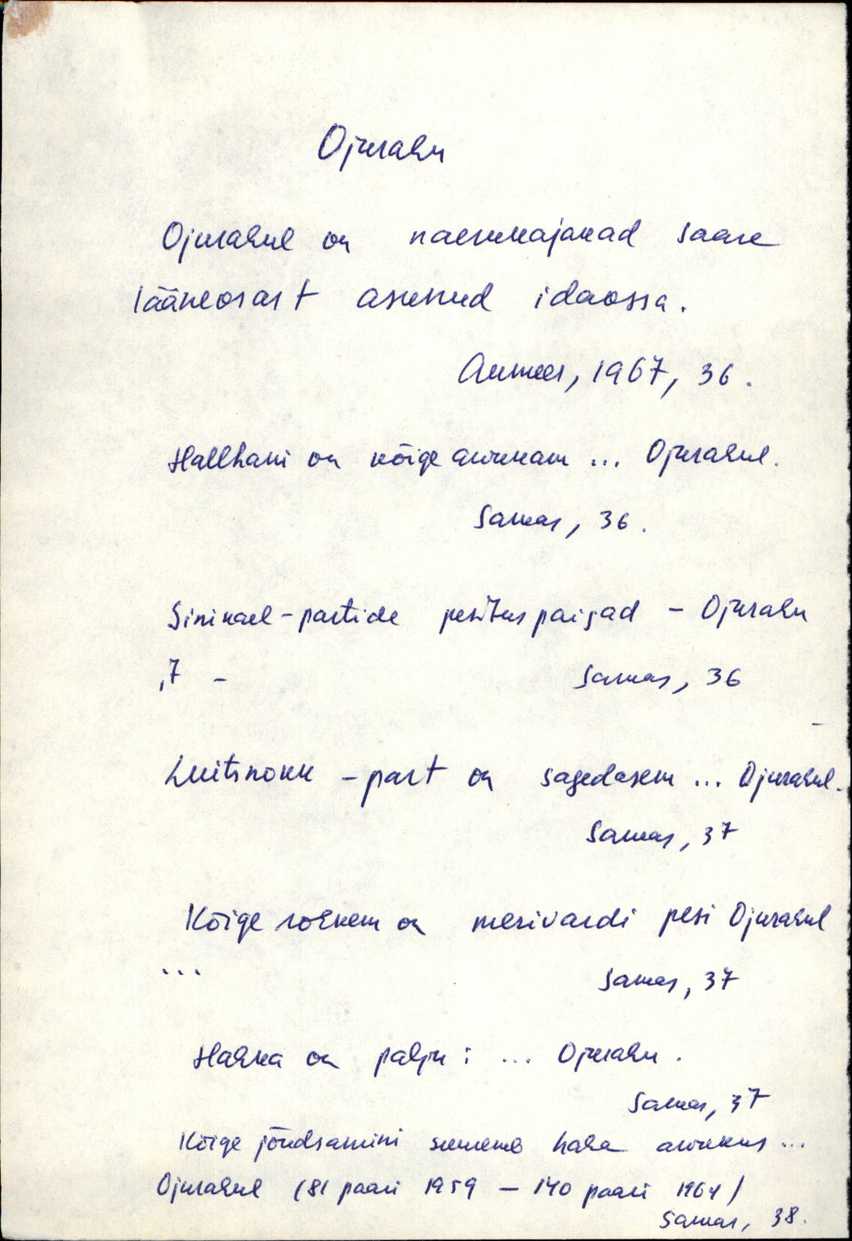 Ojurahu
Ojurahul on naerukajakad saare
lääneosast asunud idaossa.
Aumees, 1967, 36.
Hallhani on kõige arvukam ... Ojurahul.
Samas, 36.
Sinikael-partide pesituspaigad - Ojurahu
-
Samas, 36
Luitsnokk-part on sagedasem ... Ojurahul.
Samas, 37
Kõige rohkem on merivardi pesi Ojurahul
...
Samas, 37
Hahka on palju: ... Ojurahu.
Samas, 37
Kõige jõudsamini suureneb haha arvukus ...
Ojurahul (81 paari 1959 - 140 paari 1964/
Samas, 38.